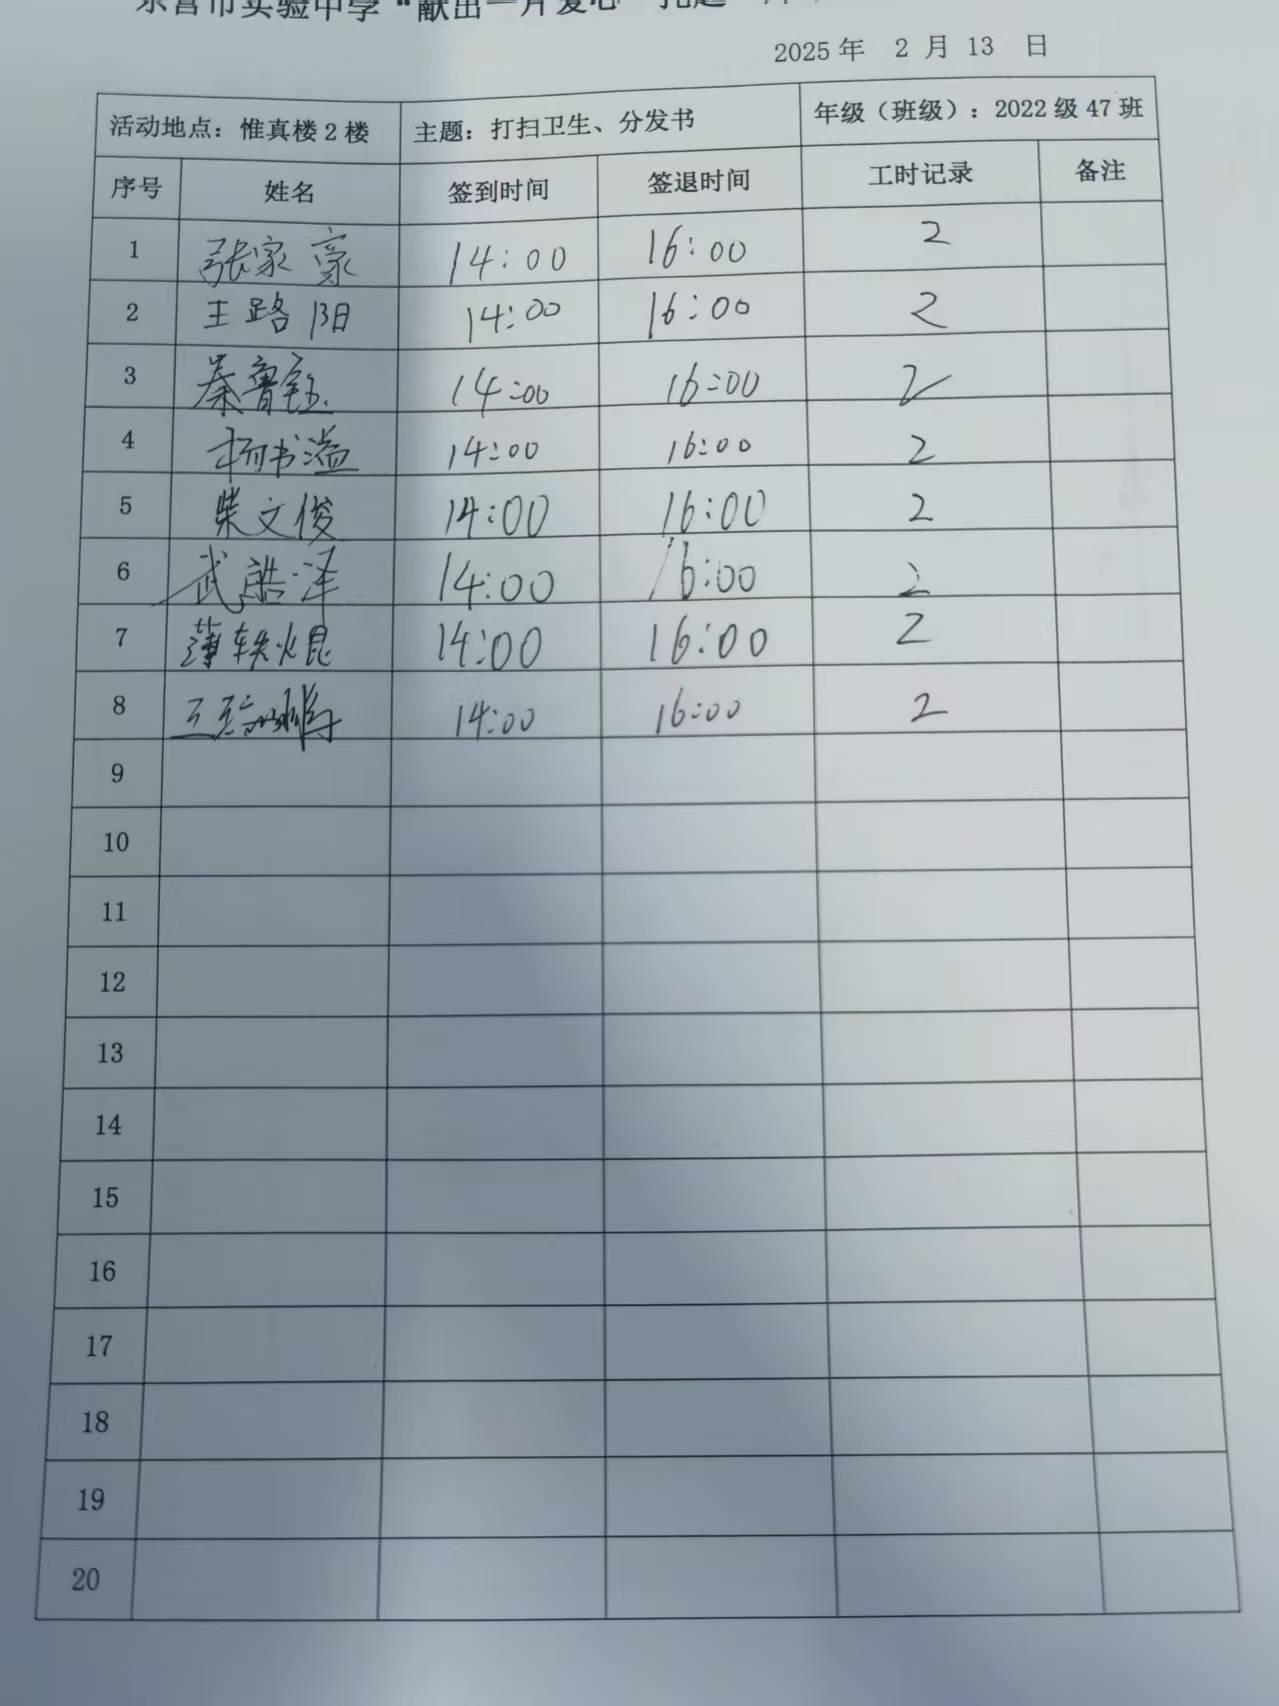 东营市实验中学“献出一片爱心
2025年 2 月 13 日
活动地点：惟真楼2楼 主题：打扫卫生、分发书 年级（班级）：2022级47班
序号 姓名 签到时间 签退时间 工时记录 备注
1 张家豪 14:00 16:00 2
2 王路阳 14:00 16:00 2
3 秦鲁钰 14:00 16:00 2
4 杨书溢 14:00 16:00 2
5 柴文俊 14:00 16:00 2
6 武皓泽 14:00 16:00 2
7 薄轶焜 14:00 16:00 2
8 14:00 16:00 2
9
10
11
12
13
14
15
16
17
18
19
20